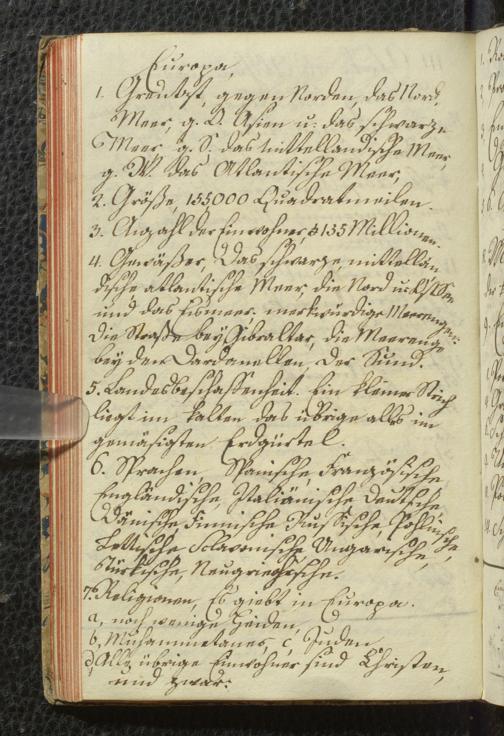 Europa,
1. Grentzt, gegen Norden, das Nord,
Meer, g. O. Asien u. das schwarze
Meer g. S. das mittelländische Meer,
g. W. das Atlantische Meer,
2. Größe, 155000 Quadratmeilen.
3. Anzahl der Einwohner, 135 Millionen.
4. Gewäßer, Das schwarze, mittellän
dische atlantische Meer, die Nord u. Ostsee
und das Eismeer. merkwürdige Meerengen:
Die Straße bey Gibraltar, die Meerenge
bey den Dardanellen der Sund.
5. Landesbeschaffenheit. Ein kleiner Strich
liegt im kalten das übrige alles im
gemäsigten Erdgürtel.
6. Sprachen, Spanische Französische,
Engländische, Italiänische Deutsche,
Dänische Finnische Russische Pohlnische,
Lettische Sclavonische Ungarische,
Türkische, Neugriechische.
7. Religionen, Es giebt in Europa.
a, noch wenige Heiden,
b, Muhammetaner, c, Juden
d, Alle übrige Einwohner sind Christen,
und zwar: